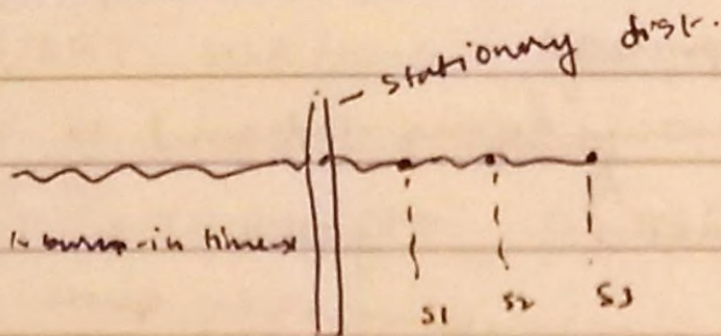 stationary dist.
burn-in time
S1 S2 S3